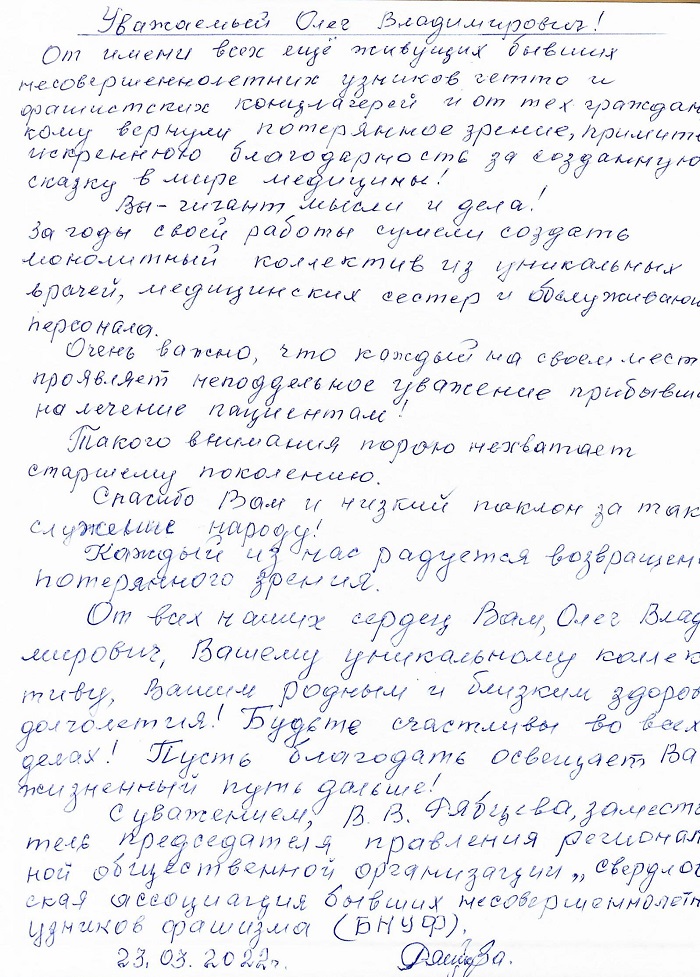 Уважаемый Олег Владимирович!
От имени всех ещё живущих бывших
несовершеннолетних узников гетто и
фашистских концлагерей и от тех граждан
кому вернули потерянное зрение, примите
искреннюю благодарность за созданную
сказку в мире медицины!
Вы - гигант мысли и дела!
За годы своей работы сумели создать
монолитный коллектив из уникальных
врачей, медицинских сестер и обслуживаю
персонала.
Очень важно, что каждый на своем мест
проявляет неподдельное уважение прибывш
на лечение пациентам!
Такого внимания порою нехватает
старшему поколению.
Спасибо Вам и низкий поклон за так
служение народу!
Каждый из нас радуется возвращен
потерянного зрения.
От всех наших сердец Вам, Олег Влад
мирович, Вашему уникальному коллек
тиву, Вашим родным и близким здоров
долголетия! Будьте счастливы во всех
делах! Пусть благодать освещает Ва
жизненный путь дальше!
С уважением, В. В. замести
тель председателя правления регионал
ной общественной организации „Свердлов
ская ассоциация бывших несовершеннолетн
узников фашизма (БНУФ).
23.03.2022г.